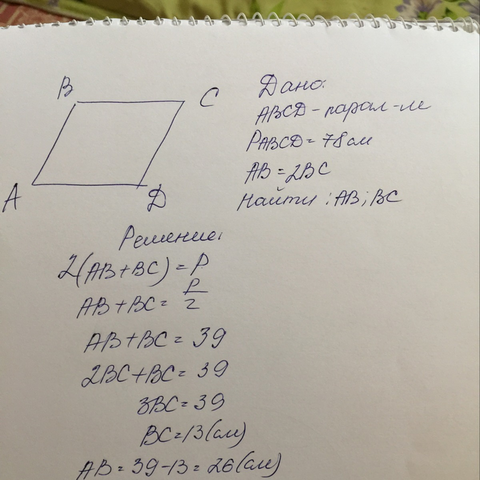 B C
A D
Дано:
ABCD - парал-м
PABCD = 78см
AB = 2BC
Найти: AB; BC
Решение:
2(AB+BC) = P
AB+BC = P/2
AB+BC = 39
2BC+BC = 39
3BC = 39
BC = 13(см)
AB = 39-13 = 26(см)